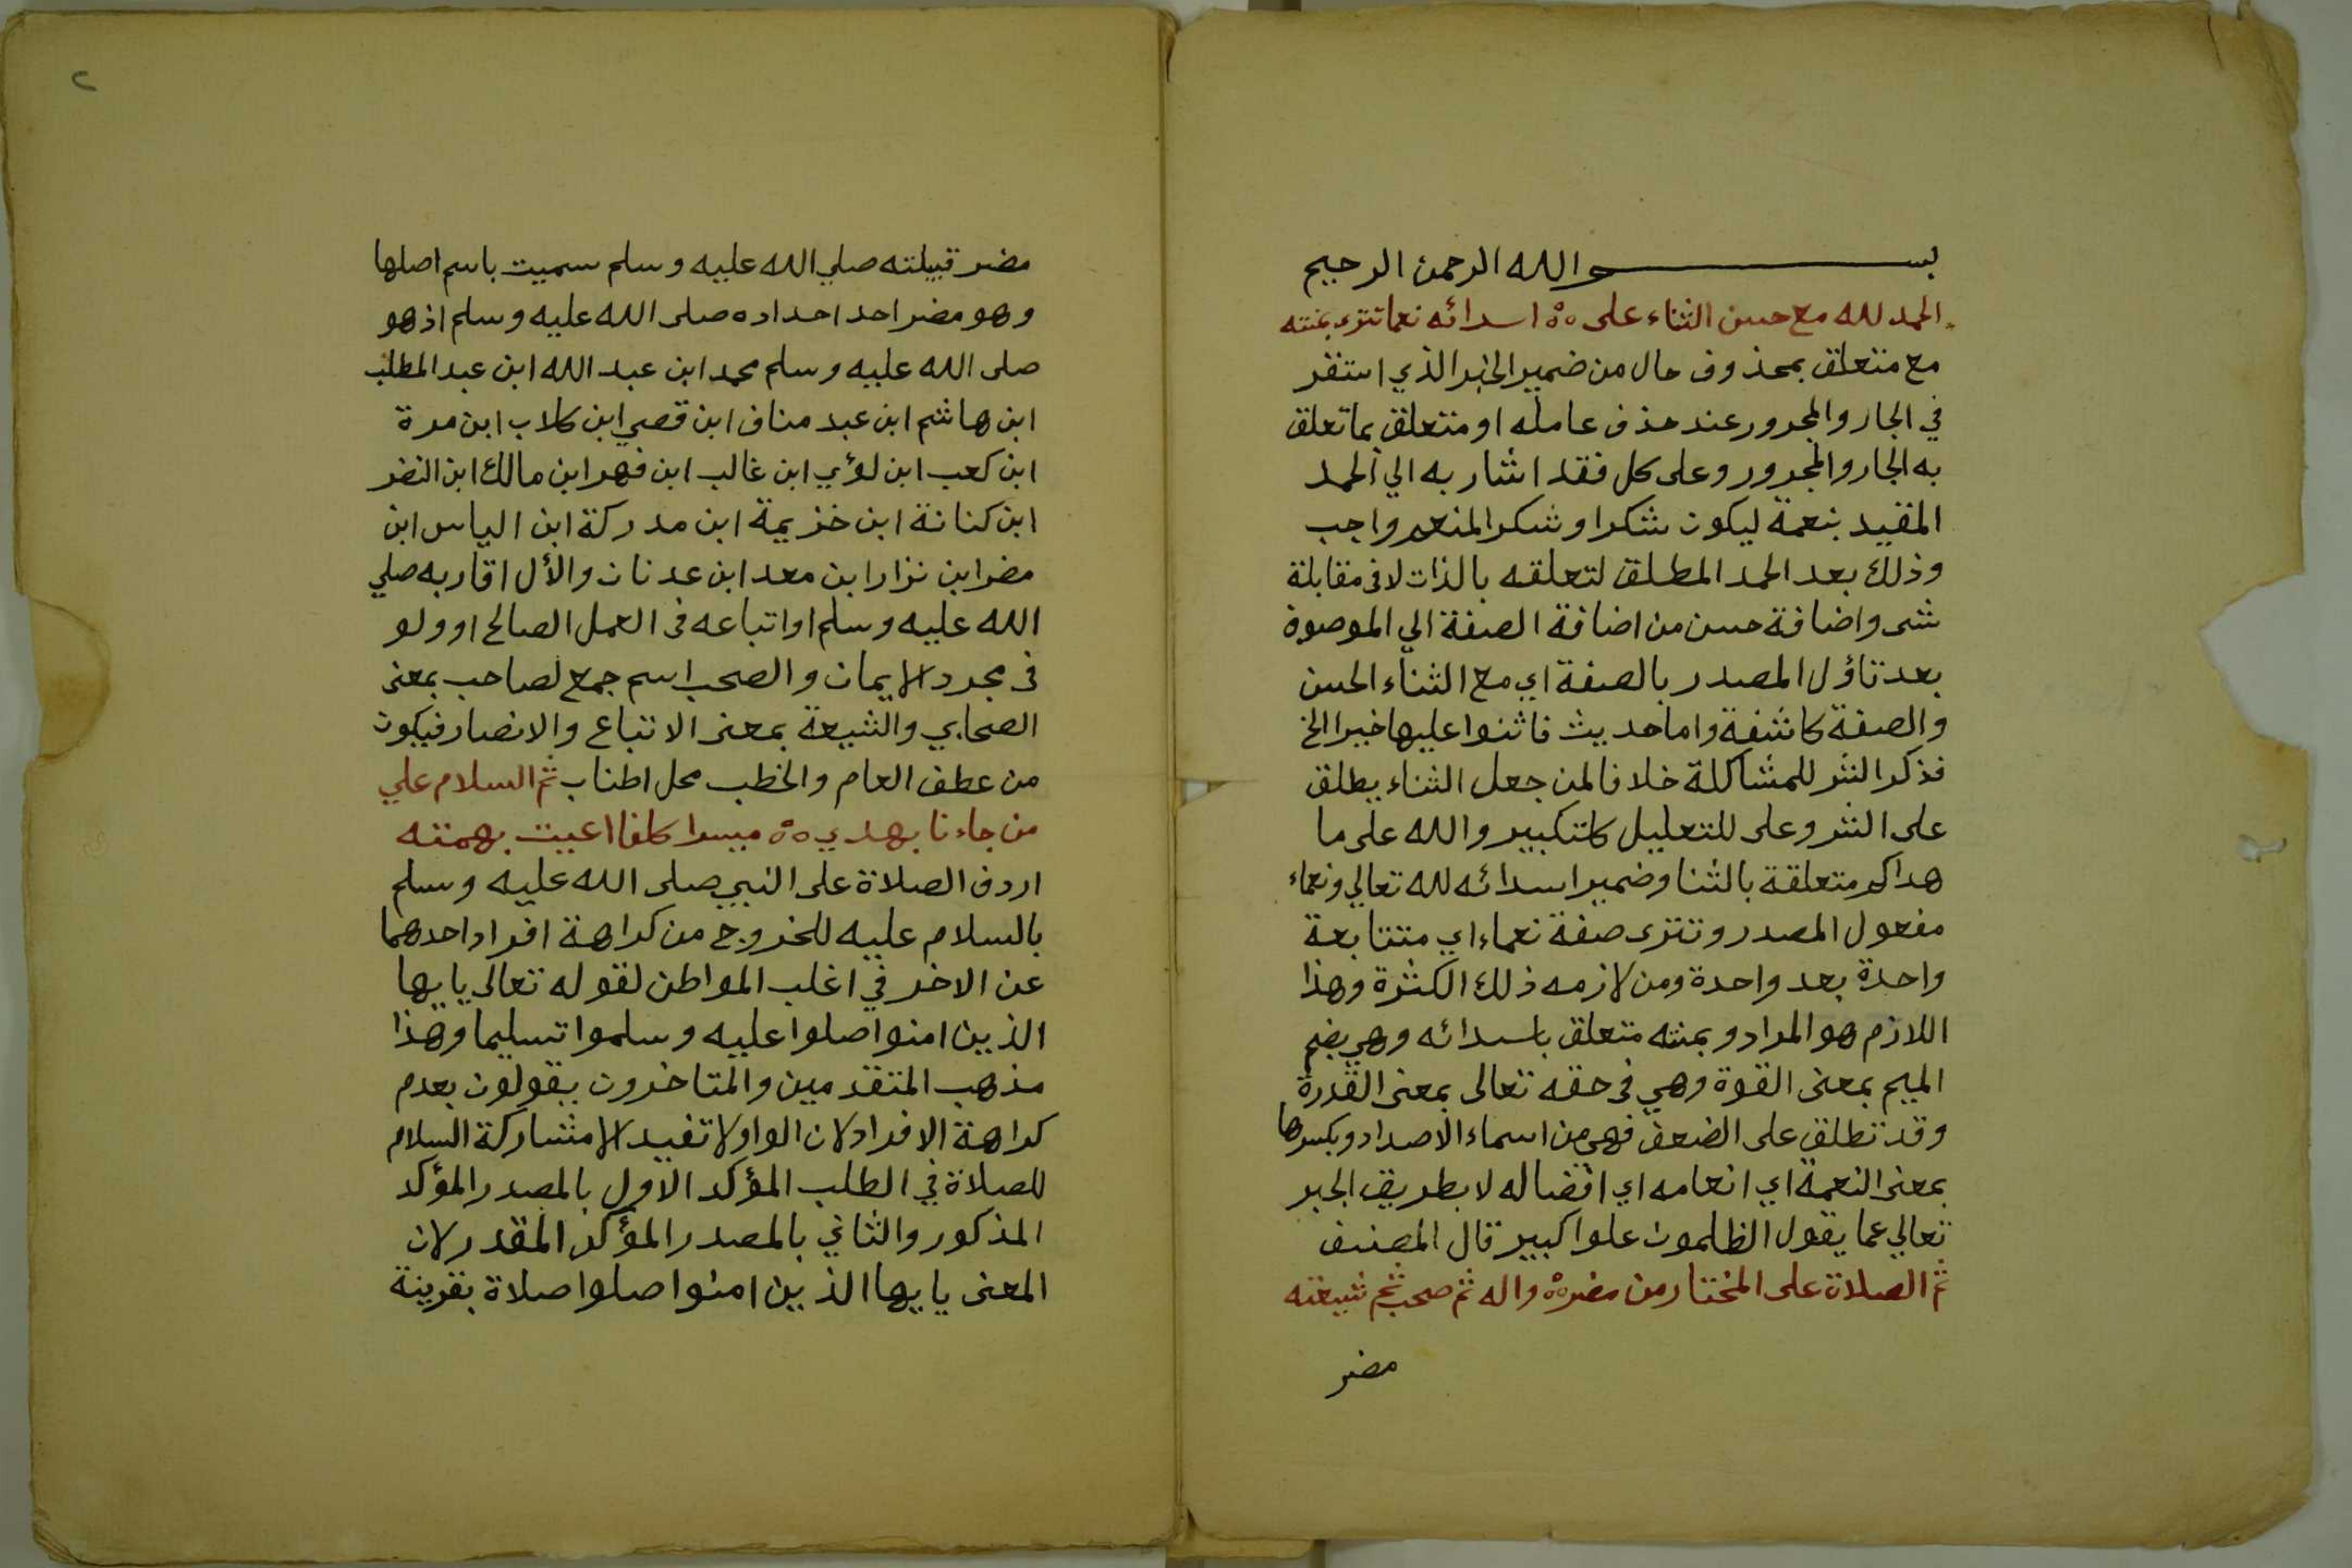 بسم الله الرحمن الرحيم
الحمد لله مع حسن الثناء على ه اسدائه نعما تترى بمنته
مع متعلق بمحذوف حال من ضمير الخبر الذي استقر
في الجار والمجرور عند حذف عامله او متعلق بما تعلق
به الجار والمجرور وعلى كل فقد اشار به الي الحمد
المقيد بنعمة ليكون شكرا وشكر المنعم واجب
وذلك بعد الحمد المطلق لتعلقه بالذات لا فى مقابلة
شى واضافة حسن من اضافة الصفة الي الموصوف
بعد تاؤل المصدر بالصفة اي مع الثناء الحسن
والصفة كاشفة واما حديث فاثنوا عليها خيرا الخ
فذكر الشر للمشاكلة خلافا لمن جعل الثناء يطلق
على الشر وعلى للتعليل كلتكبير والله على ما
هداكم متعلقة بالثنا وضمير اسدائه لله تعالي ونعماء
مفعول المصدر وتترى صفة نعماء اي متتابعة
واحدة بعد واحدة ومن لازمه ذلك الكثرة وهذا
اللازم هو المراد وبمنته متعلق باسدائه وهي بضم
الميم بمعنى القوة وهي فى حقه تعالى بمعنى القدرة
وقد تطلق على الضعف فهى من اسماء الاصداد وبكسرها
بمعنى النعمة اي انعامه اي افضاله لا بطريق الجبر
تعالي عما يقول الظلمون علوا كبير قال المصنف
ثم الصلاة على المختار من مضر ه واله ثم صحب ثم شيعته
مضر
٢
مضر قبيلته صلي الله عليه وسلم سميت باسم اصلها
وهو مضر احد احداده صلى الله عليه وسلم اذ هو
صلى الله عليه وسلم محمد ابن عبد الله ابن عبد المطلب
ابن هاشم ابن عبد مناف ابن قصي ابن كلاب ابن مرة
ابن كعب ابن لؤي ابن غالب ابن فهر ابن مالك ابن النضر
ابن كنانة ابن خزيمة ابن مدركة ابن الياس ابن
مضر ابن نزار ابن معد ابن عدنان والأل اقاربه صلي
الله عليه وسلم او اتباعه فى العمل الصالح او ولو
فى مجرد الايمان والصحب اسم جمع لصاحب بمعنى
الصحابي والشيعة بمعنى الاتباع والانصار فيكون
من عطف العام والخطب محل اطناب ثم السلام علي
من جاءنا بهدي ه ميسرا كلفا اعيت بهمته
اردف الصلاة على النبي صلى الله عليه وسلم
بالسلام عليه للخروج من كراهة افراد احدهما
عن الاخر في اغلب المواطن لقوله تعالى يايها
الذين امنوا صلوا عليه وسلموا تسليما وهذا
مذهب المتقدمين والمتاخرون يقولون بعدم
كراهة الافراد لان الواو لا تفيد الا مشاركة السلام
للصلاة في الطلب المؤكد الاول بالمصدر المؤكد
المذكور والثاني بالمصدر المؤكد المقدر لان
المعنى يايها الذين امنوا صلوا صلاة بقرينة